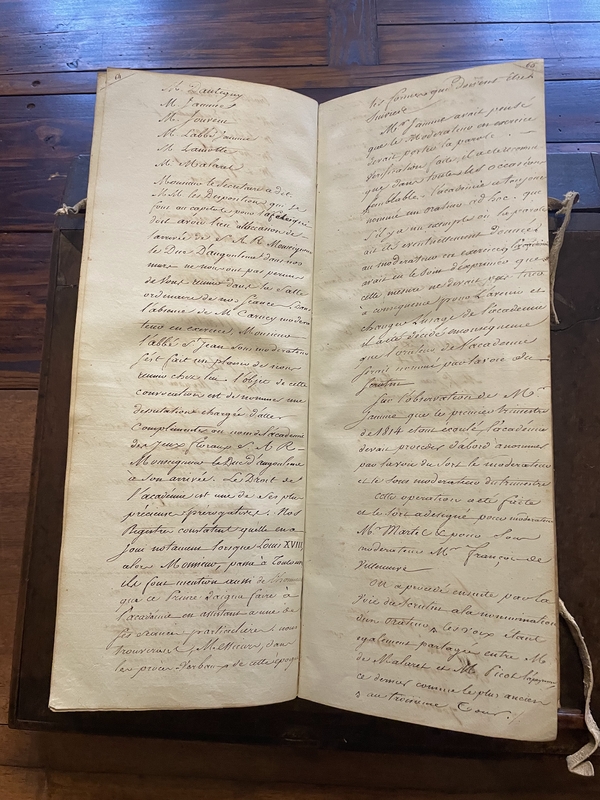 64
M. Daubigny
M. Jammes
M. Jouvent
M. L'abbé Jamme
M. Lamotte
M. Malaret
Monsieur le Secrétaire a dit
M.M. les Dispositions qui se
font au capitole pour la
doit avoir lieu à l'occasion de
l'arrivée de S. A. R. Monseigneur
le Duc D'angouleme dans nos
murs ne nous ont pas permis
de vous reunir dans la Salle
ordinaire de nos Seances. Dans
l'absence de M. Carney modera
teur en exercice, Monsieur
l'abbé St Jean sous moderateur
s'est fait un plaisir de nous
reunir chez lui. L'objet de cette
convocation est de nommer une
deputation chargée d'aller
complimenter au nom de l'academie
des Jeux floraux S. A. R.
Monseigneur le Duc d'angouleme
a son arrivée. Le Droit de
l'academie est une de ses plus
précieuses prérogatives. Nos
Registres constatent quelle en a
joui notament lorsque Louis XVIII
alors Monsieur, passa à Toulouse
ils font mention aussi de
que ce Prince daigna faire à
l'académie en assistant a une de
ses seances particulieres; nous
trouverons, Messieurs, dans
les procès Verbaux de cette epoque
les formes qui doivent être
suivies
Mr Jamme avait pensé
que le moderateur en exercice
devait porter la parole.
verification faite, il a été reconnu
que dans toutes les occasions
semblables l'academie a toujours
nommé un orateur ad hoc. que
s'il y a eu exemple où la parole
ait été eventuellement devancée
au moderateur en exercice, l'academie
avait eu le soin d'exprimer que
cette mesure ne devait pas tirer
a conséquence pour l'avenir et
changer l'usage de l'academie
il a été décidé en conséquence
que l'orateur de l'academie
serait nommé par la voie du
scrutin
Sur l'observation de Mr
Jamme que le premier trimestre
de 1814 etant ecoulé l'academie
devait proceder d'abord a nommer
par la voie du sort le moderateur
et le sous moderateur du trimestre
cette operation a été faite
et le sort a designé pour moderateur
Mr Martel & pour sous
moderateur Mr François de
Villeneuve
On a procédé ensuite par la
voie du scrutin a la nomination
d'un orateur, & les voix étant
egalement partagées entre M.
de Malaret et M. Picot Lapeyrouse
ce dernier comme le plus ancien
a au troisieme Tour.